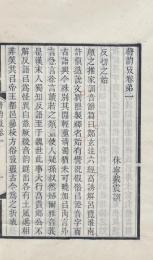 聲韻攷卷第一
休寧戴震譔
反切之始
顏之推家訓音辭篇曰鄭玄注六經高誘解呂覽淮南
許慎造說文劉熙製釋名始有譬況假借以證音字而
古語與今殊別其間輕重清濁猶未可曉加以內言外
言急言徐言讀若之類益使人疑孫叔然創爾雅音義
是漢末人獨知反語至于魏世此事大行高貴鄉公不
解反語以為怪異自茲厥後音韻鋒出各有土風遞相
非笑共以帝王都邑參校方俗考覈古今為之折衷